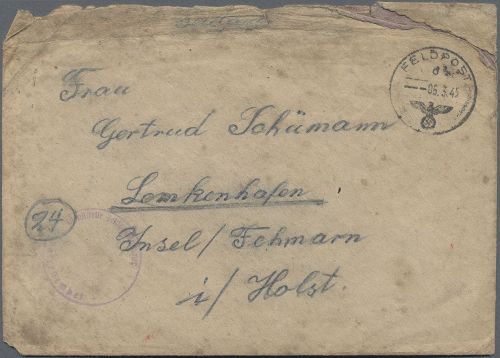 FELDPOST
06.3.45
Frau
Gertrud Schümann
Lemkenhafen
24
Insel/Fehmarn
i/Holst.